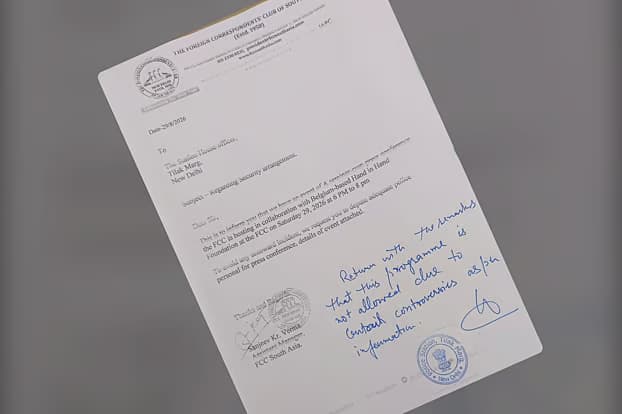 THE FOREIGN CORRESPONDENTS' CLUB OF SOUTH
(Estd. 1958)
NEW DELHI
Date-29/8/2026
To
The Station House officer,
Tilak Marg,
New Delhi
Subject – Regarding Security arrangement.
Dear Sir,
This is to inform you that we have an event of a seminar cum press conference
the FCC is hosting in collaboration with Belgium-based Hand in Hand
Foundation at the FCC on Saturday 29, 2026 at 6 PM to 8 pm
To avoid any untoward incident, we request you to depute adequate police
personal for press conference, details of event attached.
Thanks and
Sanjeev Kr. Verma
Assistant Manager,
FCC South Asia.
Return with remarks
that this programme is
not allowed due to
controversies as per
information.
Police Station, Tilak Marg
New Delhi